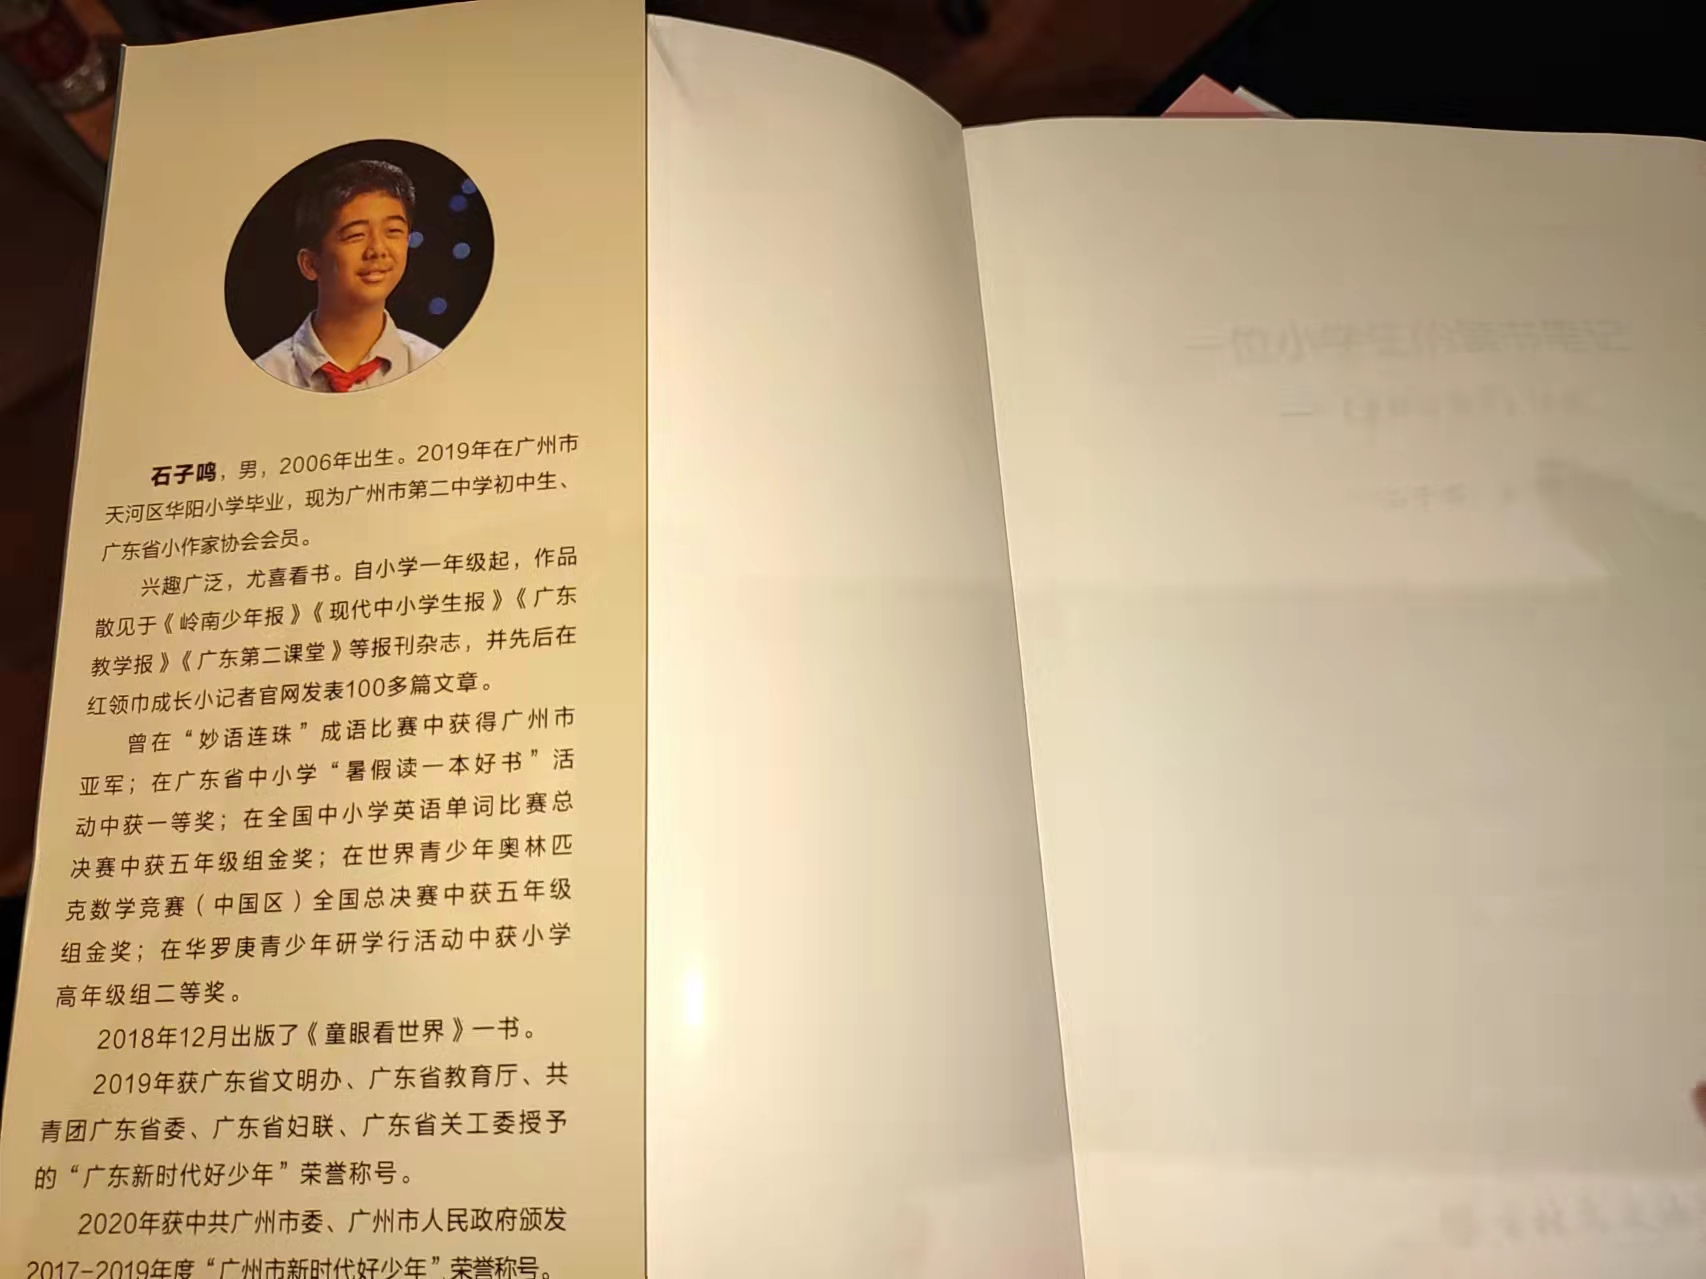 石子鸣，男，2006年出生。2019年在广州市
天河区华阳小学毕业，现为广州市第二中学初中生、
广东省小作家协会会员。
兴趣广泛，尤喜看书。自小学一年级起，作品
散见于《岭南少年报》《现代中小学生报》《广东
教学报》《广东第二课堂》等报刊杂志，并先后在
红领巾成长小记者官网发表100多篇文章。
曾在“妙语连珠”成语比赛中获得广州市
亚军；在广东省中小学“暑假读一本好书”活
动中获一等奖；在全国中小学英语单词比赛总
决赛中获五年级组金奖；在世界青少年奥林匹
克数学竞赛（中国区）全国总决赛中获五年级
组金奖；在华罗庚青少年研学行活动中获小学
高年级组二等奖。
2018年12月出版了《童眼看世界》一书。
2019年获广东省文明办、广东省教育厅、共
青团广东省委、广东省妇联、广东省关工委授予
的“广东新时代好少年”荣誉称号。
2020年获中共广州市委、广州市人民政府颁发
2017-2019年度“广州市新时代好少年”荣誉称号。
一位小学生的读书笔记